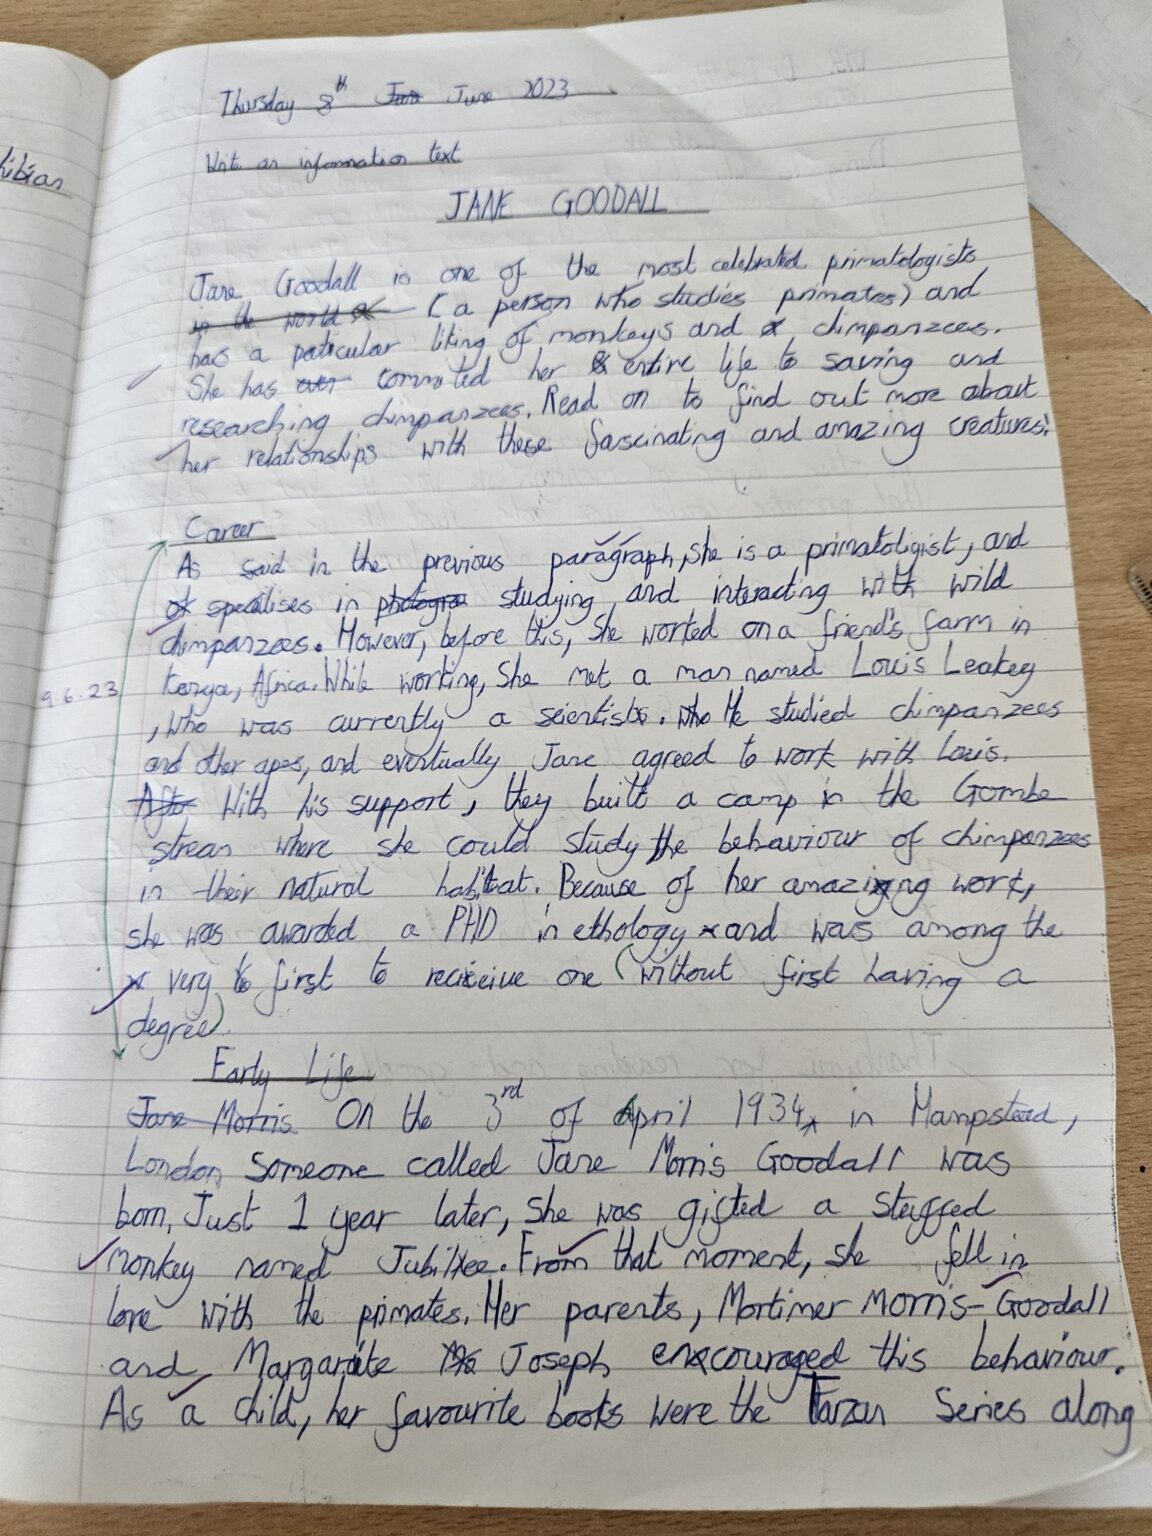 Thursday 8th June 2023
Write an information text
JANE GOODALL
Jane Goodall is one of the most celebrated primatologists
in the world (a person who studies primates) and
has a paticular liking of monkeys and chimpanzees.
She has ever commited her entire life to saving and
researching chimpanzees. Read on to find out more about
her relationships with these fascinating and amazing creatures!
Career
As said in the previous paragraph, she is a primatoligist, and
specailises in studying and interacting with wild
chimpanzees. However, before this, she worked on a friend's farm in
9.6.23
Kenya, Africa. While working, She met a man named Louis Leakey
, who was currently a scientist. He studied chimpanzees
and other apes, and eventually Jane agreed to work with Louis.
After With his support, they built a camp in the Gombe
stream where she could study the behaviour of chimpanzees
in their natural habitat. Because of her amazing work,
she was awarded a PHD in ethology and was among the
very first to recieive one (without first having a
degree).
Early Life
Jane Morris On the 3rd of April 1934, in Hampstead,
London someone called Jane Morris Goodall was
born. Just 1 year later, she was gifted a stuffed
monkey named Jubilee. From that moment, she fell in
love with the primates. Her parents, Mortimer Morris-Goodall
and Margaraite Joseph encouraged this behaviour.
As a child, her favourite books were the Tarzan Series along